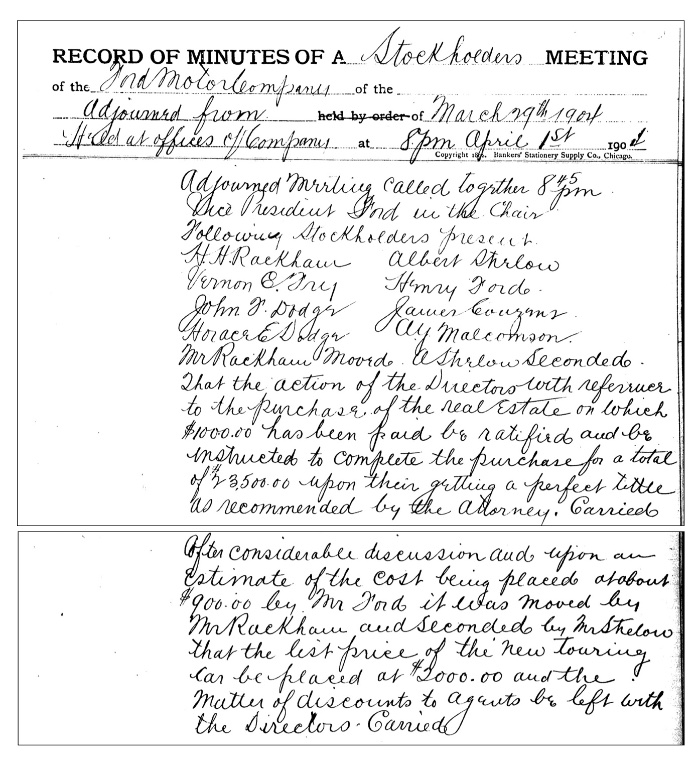 RECORD OF MINUTES OF A Stockholders MEETING
of the Ford Motor Company of the
Adjourned from held by order of March 29th 1904
Held at offices of Company at 8pm April 1st 1904
Copyright Bankers' Stationery Supply Co., Chicago.
Adjourned Meeting called together 8 45 pm
Vice President Ford in the Chair
Following Stockholders present.
H H Rackham Albert Strelow
Vernon E. Fry Henry Ford.
John F. Dodge James Couzens.
Horace E Dodge A Y Malcomson.
Mr Rackham Moved. A Strelow Seconded.
That the action of the Directors with reference
to the purchase of the real Estate on which
$1000.00 has been paid be ratified and be
instructed to complete the purchase for a total
of $23500.00 upon their getting a perfect tittle
as recommended by the Attorney. Carried
After considerable discussion and upon an
Estimate of the cost being placed at about
$900.00 by Mr Ford it was moved by
Mr Rackham and Seconded by Mr Strelow
that the list price of the new touring
Car be placed at $2000.00 and the
Matter of discounts to agents be left with
the Directors. Carried